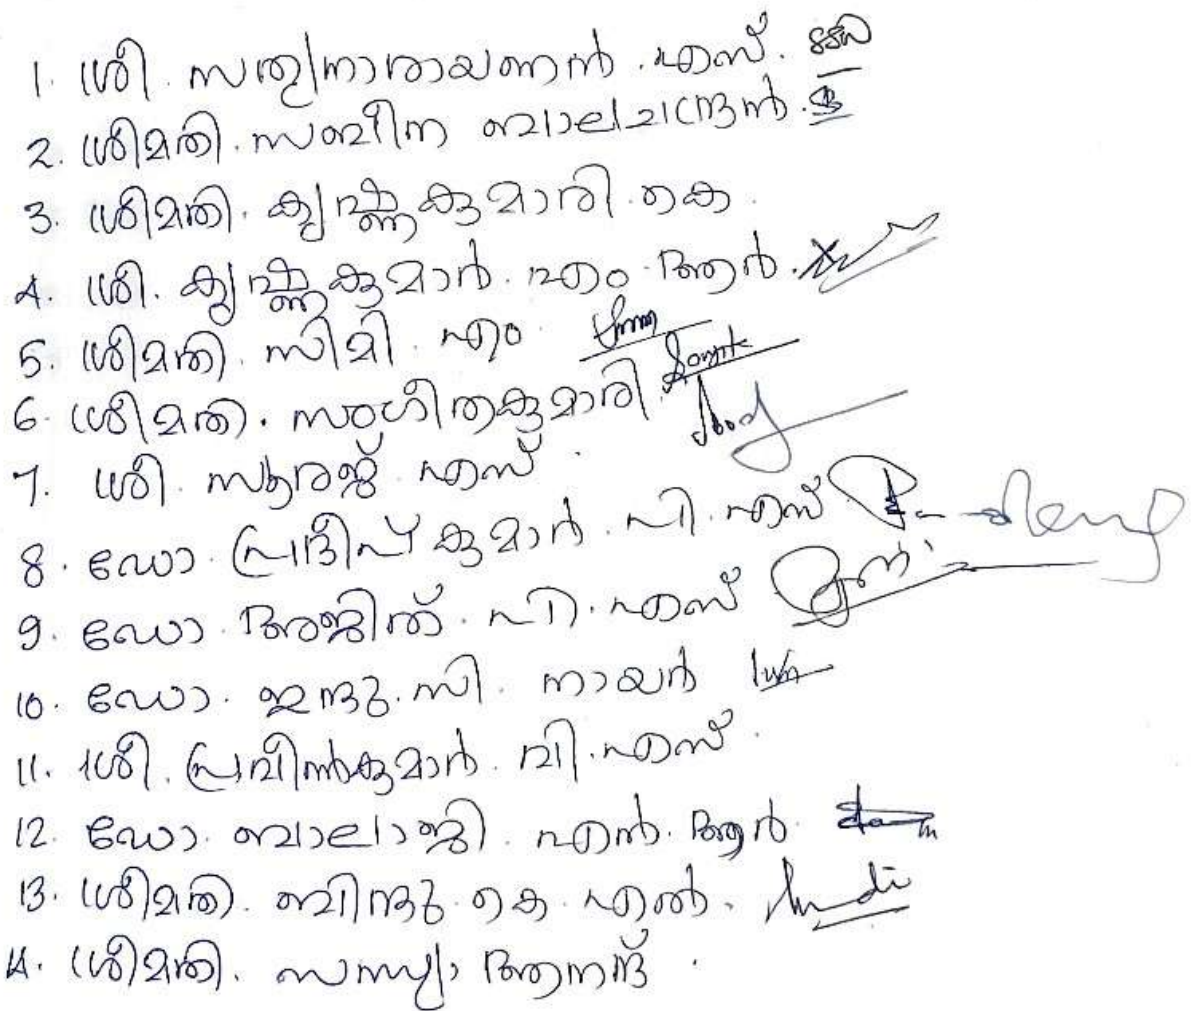 1. ശ്രീ. സത്യനാരായണൻ. എസ്.
2. ശ്രീമതി. സബീന ബാലചന്ദ്രൻ.
3. ശ്രീമതി. കൃഷ്ണകുമാരി. കെ.
4. ശ്രീ. കൃഷ്ണകുമാർ. എം. ആർ.
5. ശ്രീമതി. സിമി. എം
6. ശ്രീമതി. സംഗീതകുമാരി.
7. ശ്രീ. സൂരജ് എസ്.
8. ഡോ. പ്രദീപ് കുമാർ. പി. എസ്
9. ഡോ. അജിത്. പി. എസ്
10. ഡോ. ഇന്ദു. സി. നായർ
11. ശ്രീ. പ്രവീൺകുമാർ. വി. എസ്.
12. ഡോ. ബാലാജി. എൻ. ആർ.
13. ശ്രീമതി. ബിന്ദു. കെ. എൽ.
14. ശ്രീമതി. സന്ധ്യാ ആനന്ദ്.